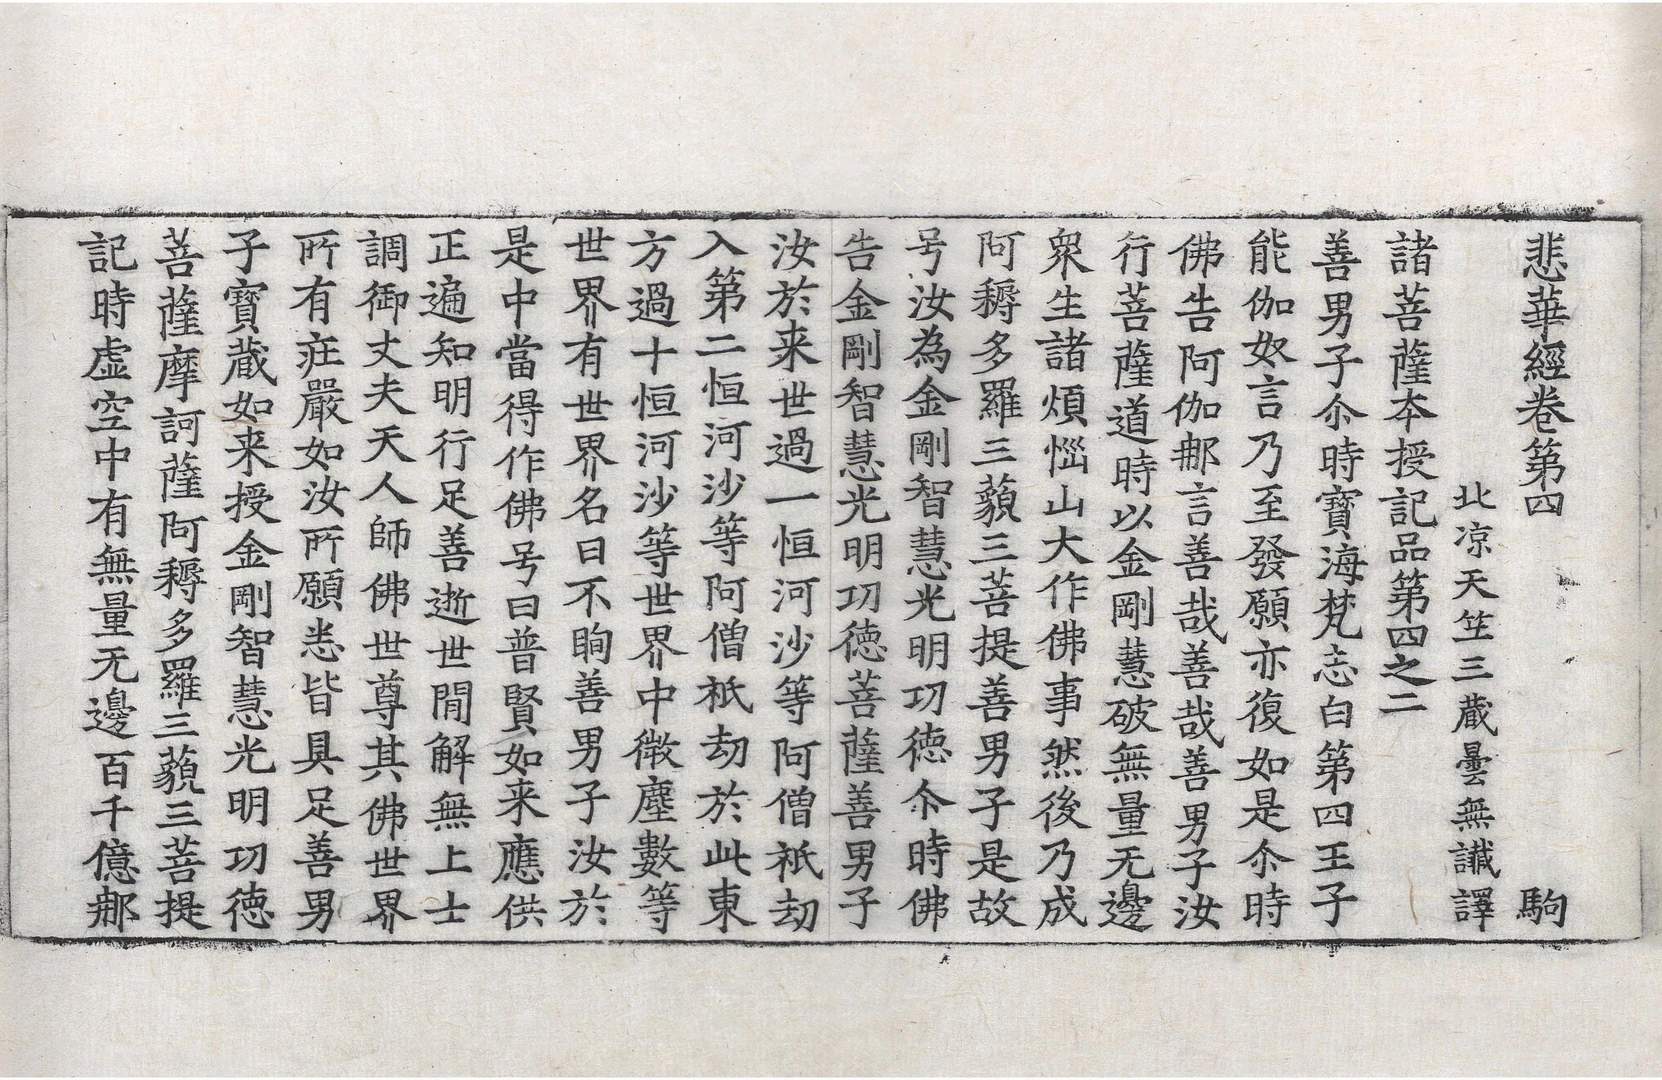 悲華經卷第四　駒
北涼天竺三藏曇無讖譯
諸菩薩本授記品第四之二
善男子尒時寶海梵志白第四王子
能伽奴言乃至發願亦復如是尒時
佛告阿伽𨚗言善哉善哉善男子汝
行菩薩道時以金剛慧破無量无邊
衆生諸煩惱山大作佛事然後乃成
阿耨多羅三藐三菩提善男子是故
号汝為金剛智慧光明功徳尒時佛
告金剛智慧光明功徳菩薩善男子
汝於来世過一恒河沙等阿僧祇劫
入第二恒河沙等阿僧祇劫於此東
方過十恒河沙等世界中微塵數等
世界有世界名曰不眴善男子汝於
是中當得作佛号曰普賢如来應供
正遍知明行足善逝世間解無上士
調御丈夫天人師佛世尊其佛世界
所有莊嚴如汝所願悉皆具足善男
子寶藏如来授金剛智慧光明功徳
菩薩摩訶薩阿耨多羅三藐三菩提
記時虚空中有無量无邊百千億𨚗